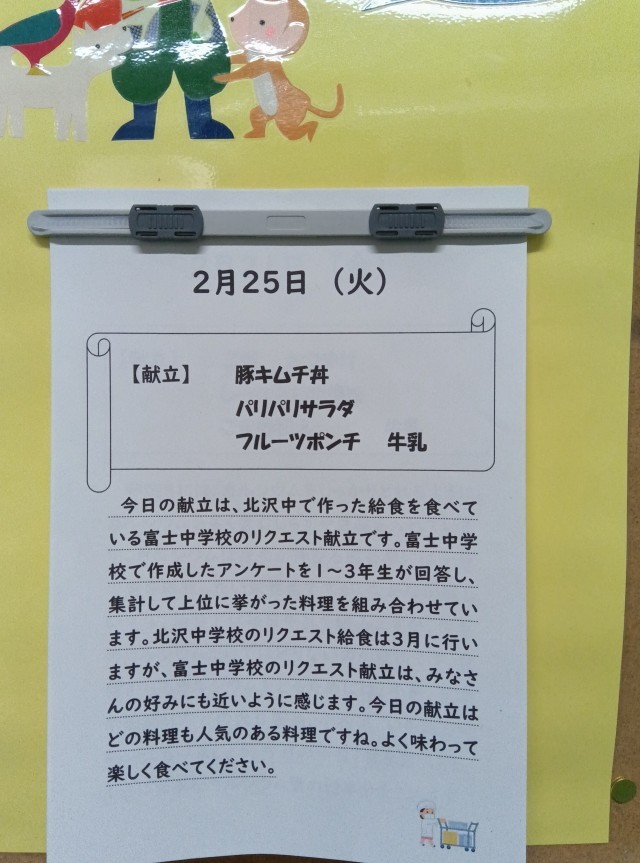 2月25日（火）
【献立】　豚キムチ丼
パリパリサラダ
フルーツポンチ　牛乳
今日の献立は、北沢中で作った給食を食べて
いる富士中学校のリクエスト献立です。富士中学
校で作成したアンケートを1～3年生が回答し、
集計して上位に挙がった料理を組み合わせてい
ます。北沢中学校のリクエスト給食は3月に行い
ますが、富士中学校のリクエスト献立は、みなさ
んの好みにも近いように感じます。今日の献立は
どの料理も人気のある料理ですね。よく味わって
楽しく食べてください。